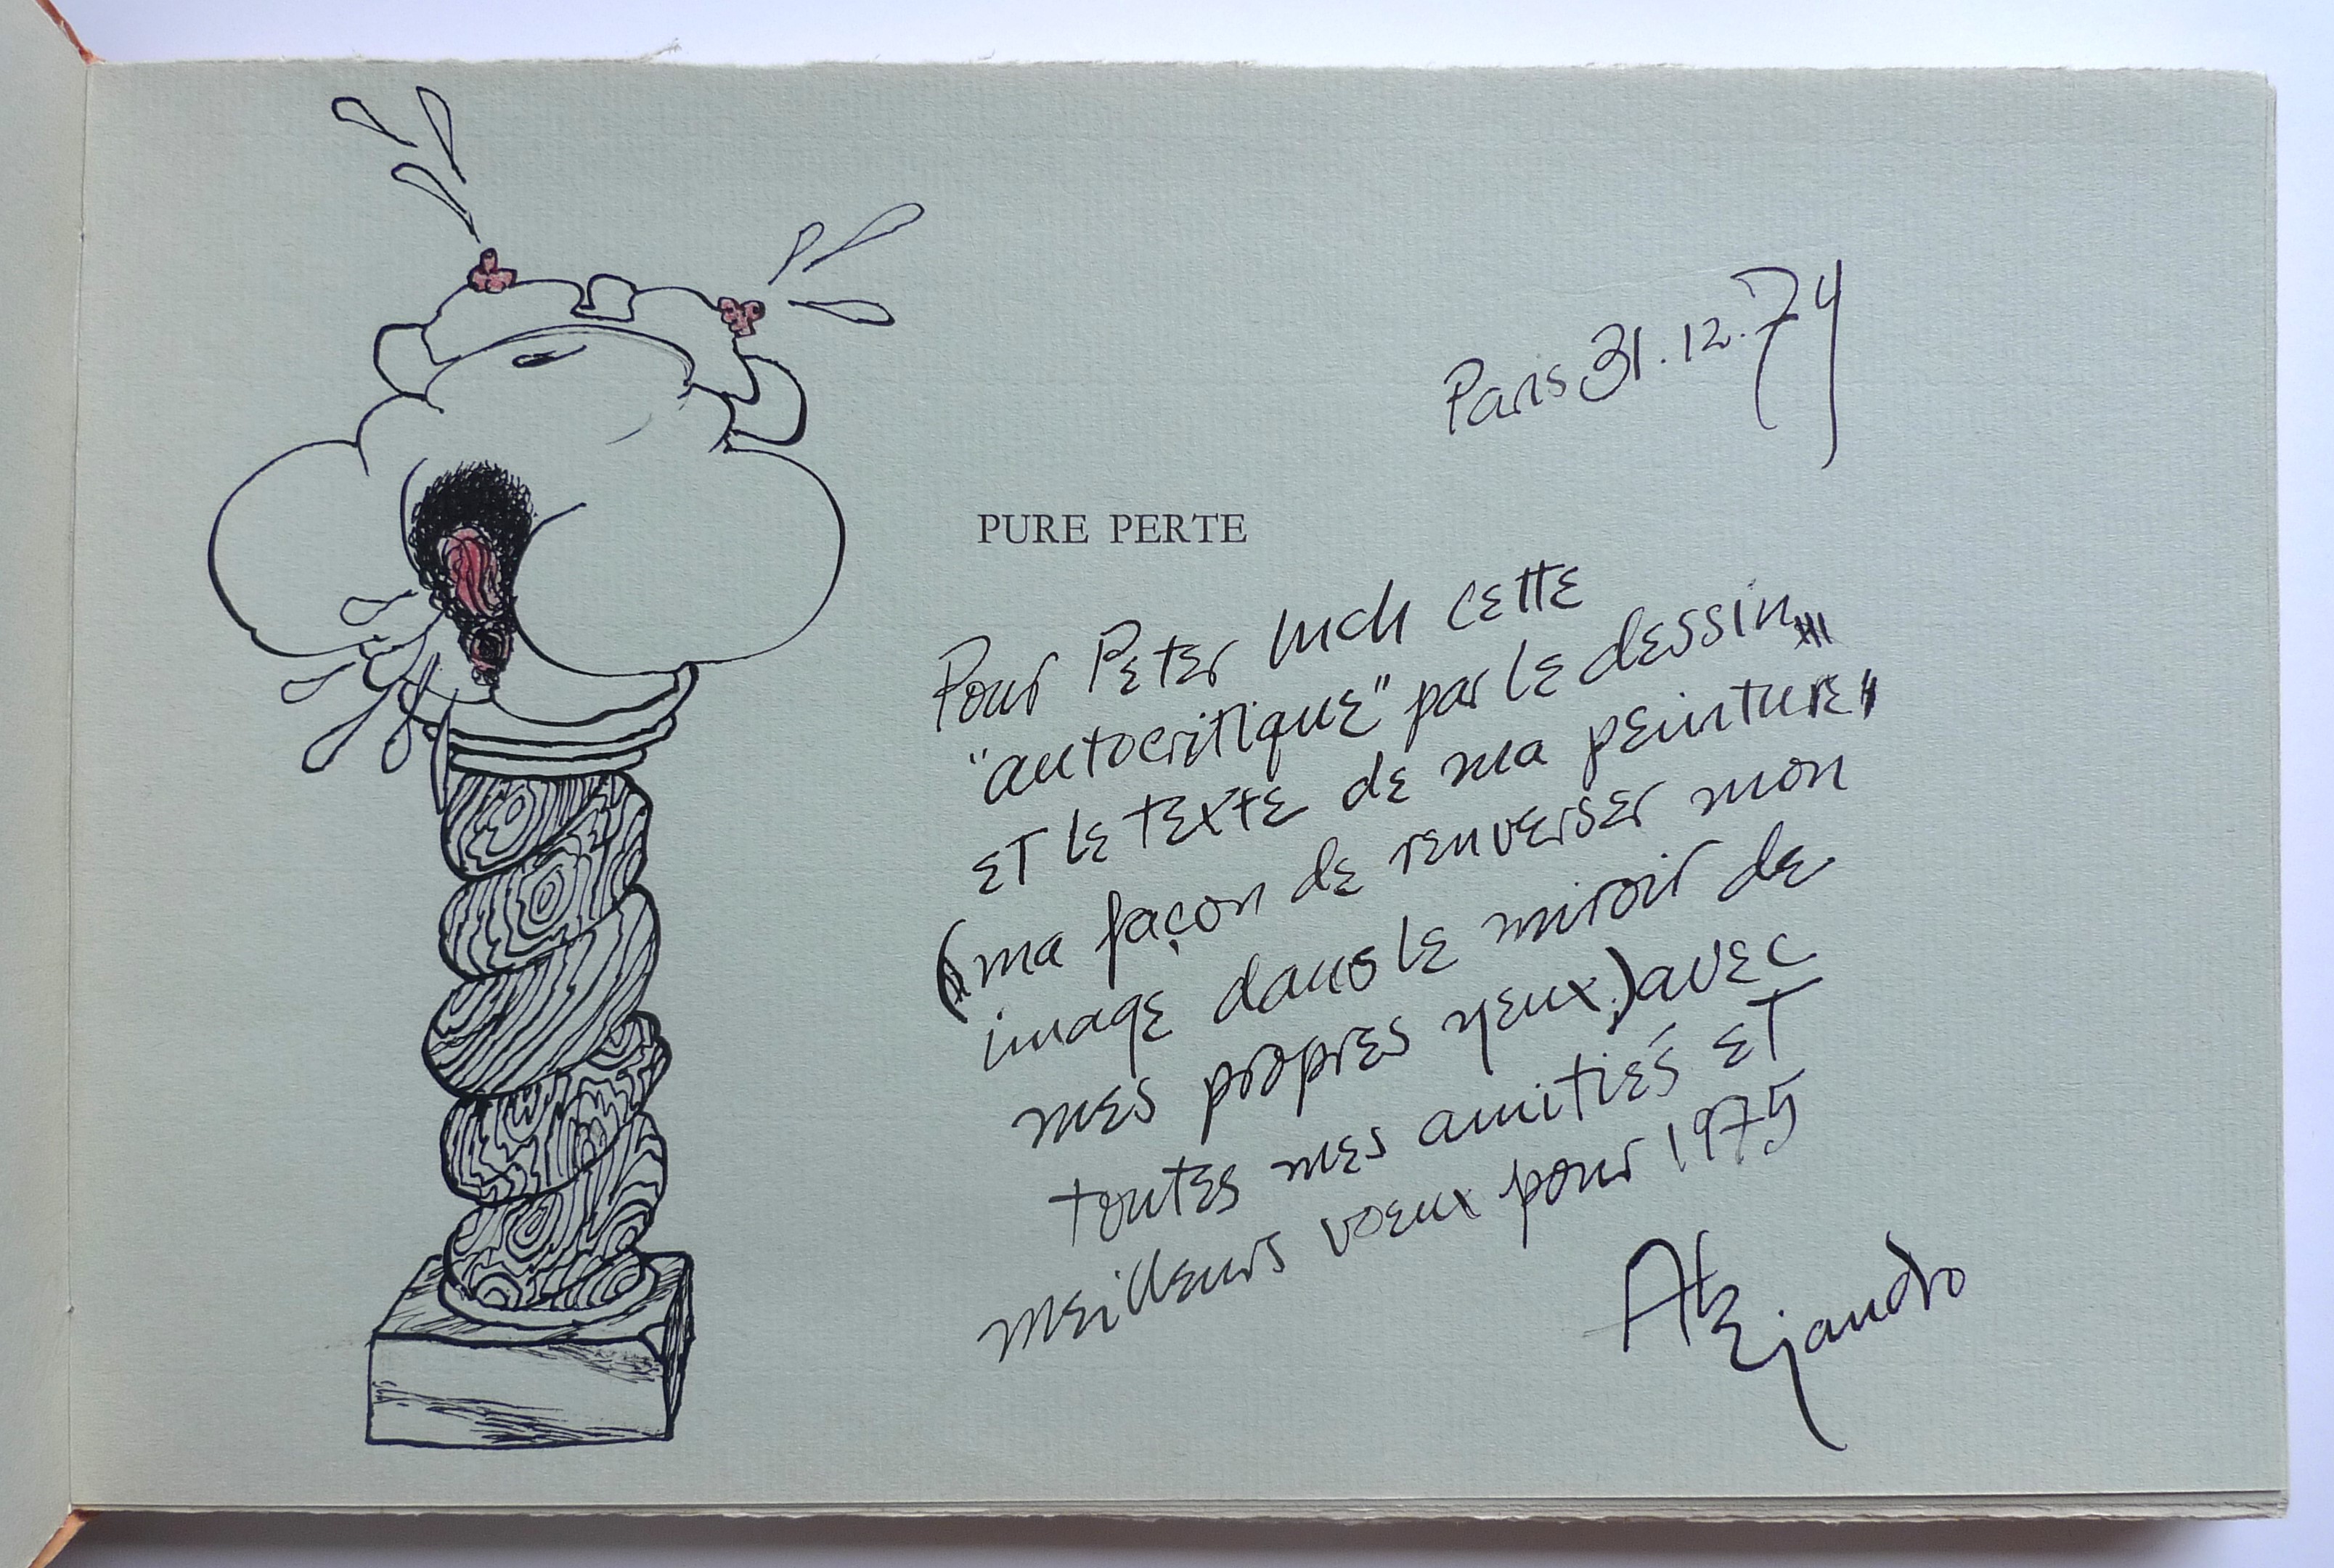 Paris 31.12.74
PURE PERTE
Pour Peter cette
"autocritique" par le dessin,,,
et le texte de ma peinture,,
(ma façon de renverser mon
image dans le miroir de
mes propres yeux.) avec
toutes mes amitiés et
meilleurs voeux pour 1975
Alejandro